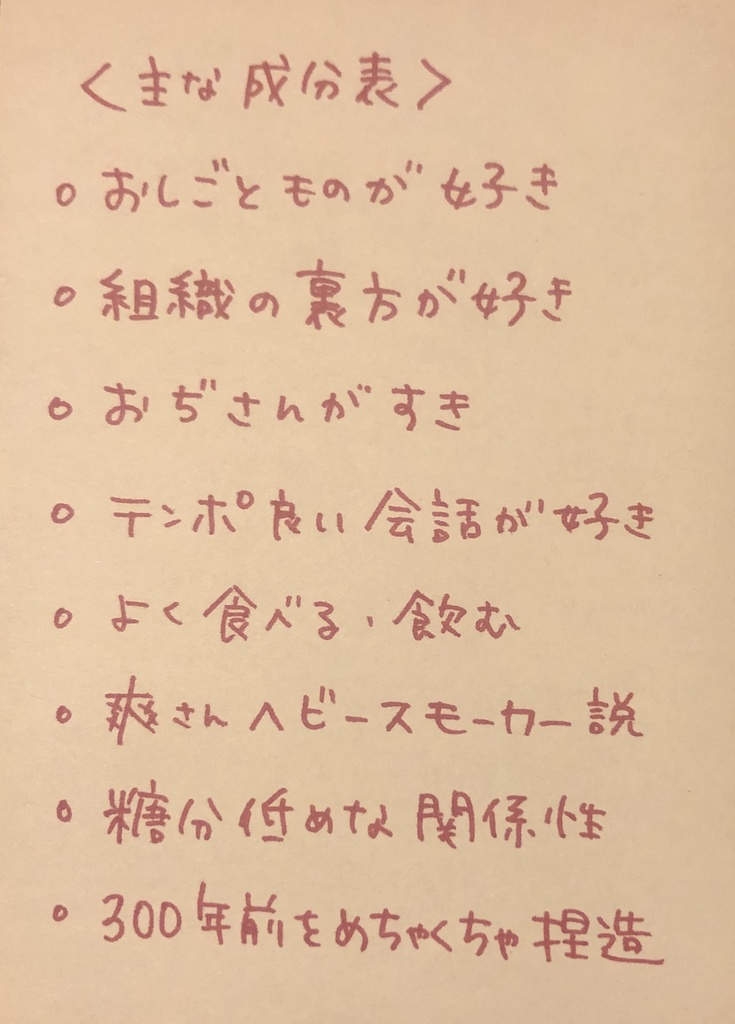 〈主な成分表〉
○ おしごとものが好き
○ 組織の裏方が好き
○ おぢさんがすき
○ テンポ良い会話が好き
○ よく食べる、飲む
○ 爽さんヘビースモーカー説
○ 糖分低めな関係性
○ 300年前をめちゃくちゃ捏造